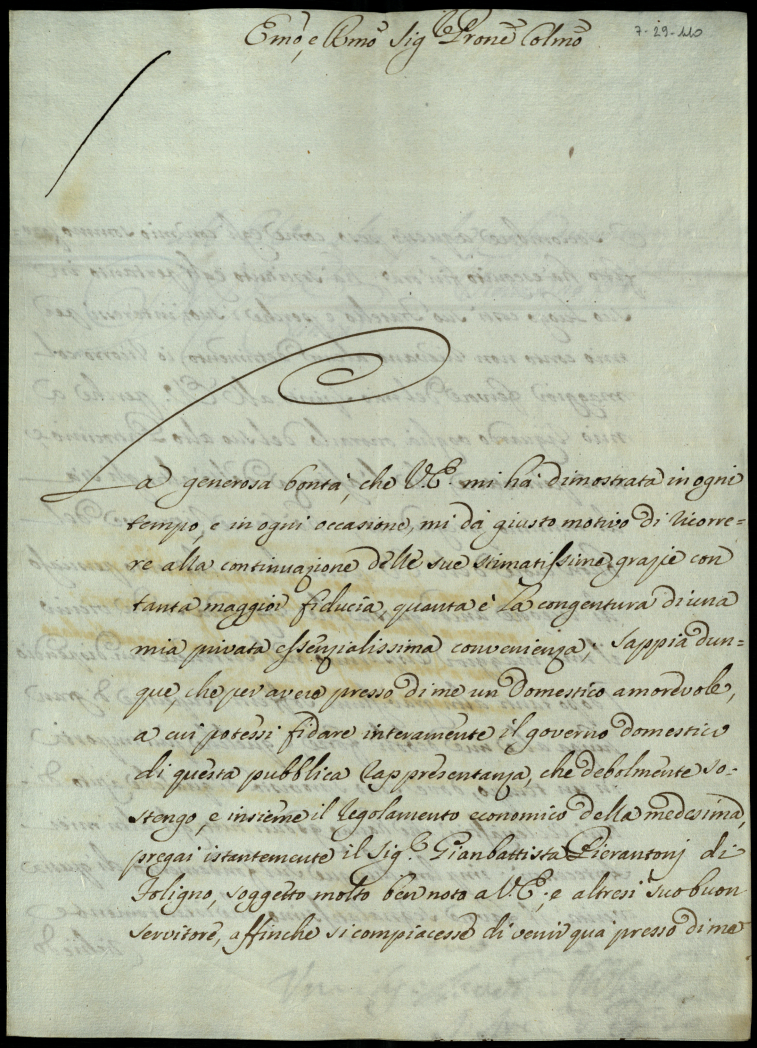 Emo, e Rmo Sig.re Prone Colmo
7-29-110
La generosa bontà, che V.E. mi hà dimostrata in ogni
tempo, e in ogni occasione, mi dà giusto motivo di ricorre=
re alla continuazione delle sue stimatissime grazie con
tanta maggior fiducia, quanta è la congentura di una
mia privata essenzialissima convenienza. Sappia dun=
que, che per avere presso di me un Domestico amorevole,
a cui potessi fidare interamente il governo domestico
di questa pubblica rappresentanza, che debolmente so=
stengo, e insieme il regolamento economico della medesima,
pregai istantemente il Sig.r Gianbattista Pierantonj di
Foligno, soggetto molto ben noto a V.E., e altresì suo buon
servitore, affinche si compiacesse di venir quà presso di me